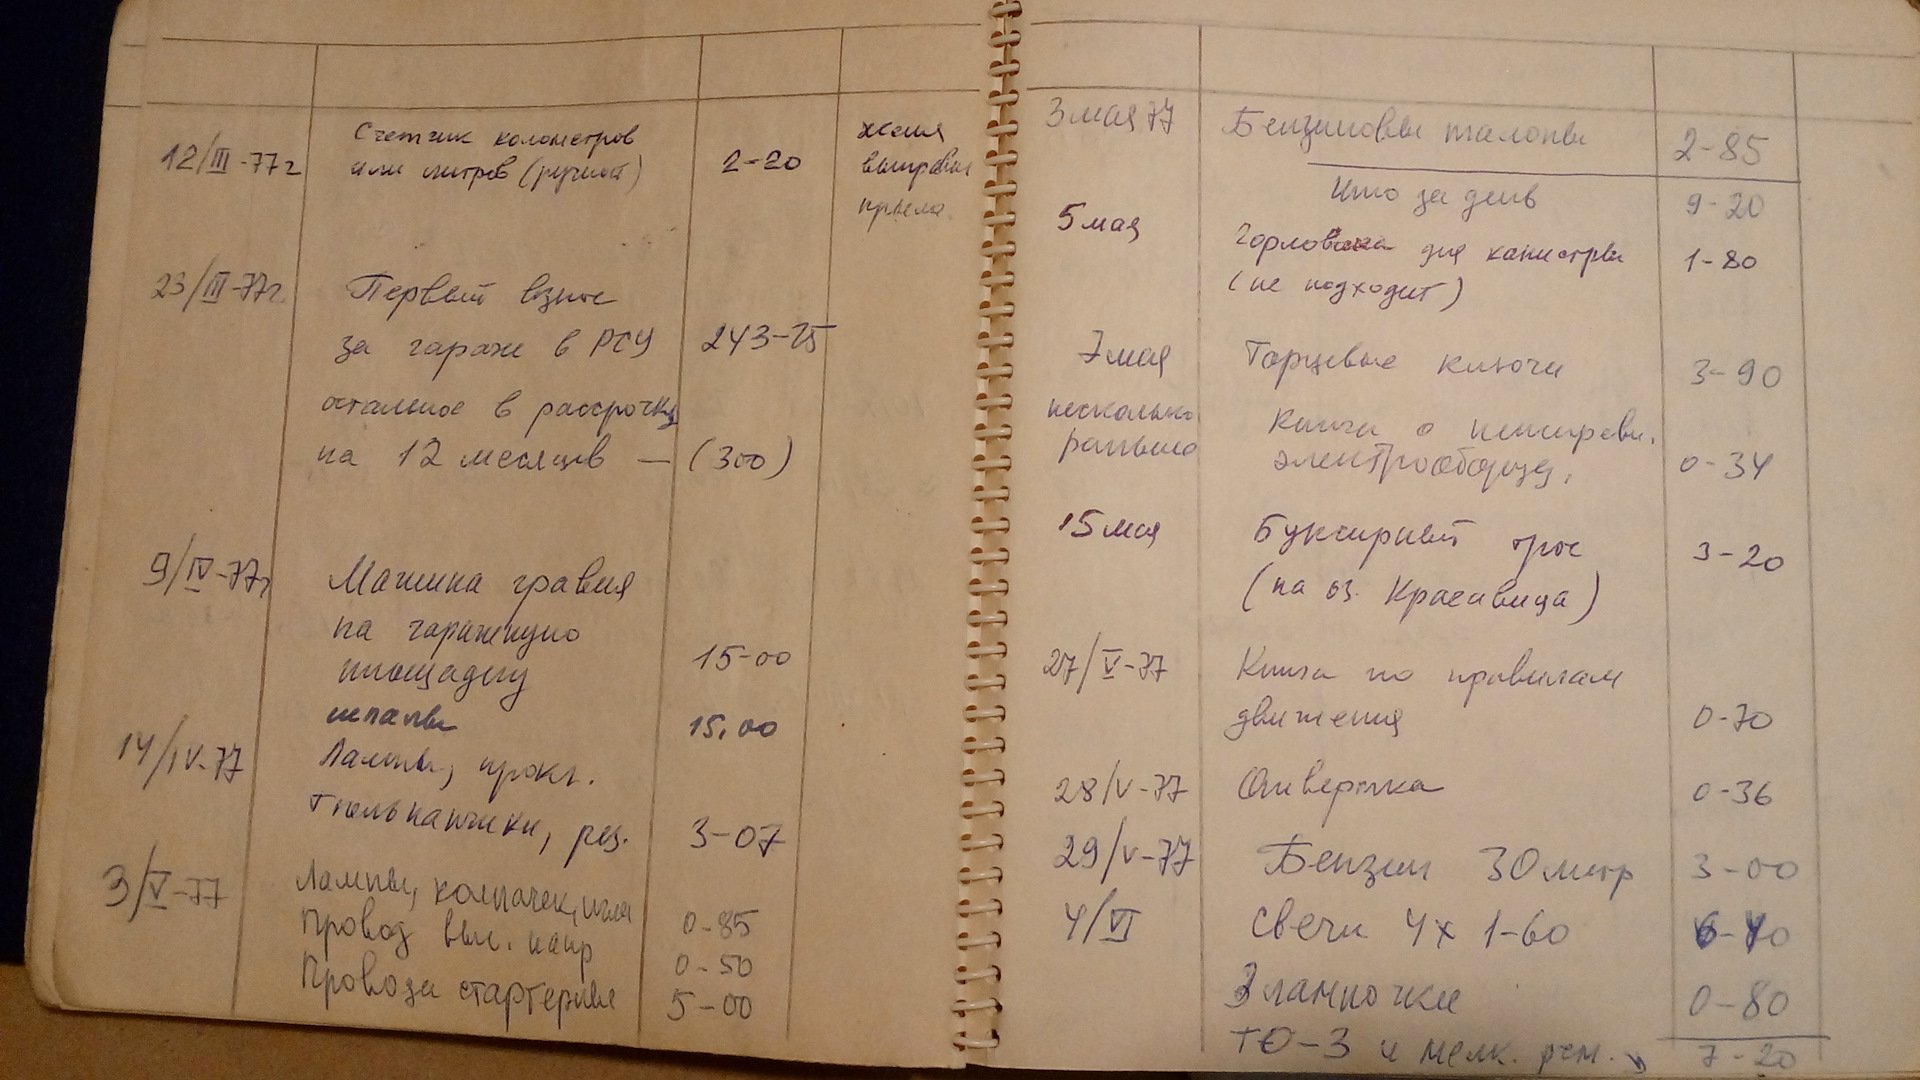 12/III-77г Счетчик колометров 2-20 женя
или литров (ручной) выправил
крыла
23/III-77г. Первый взнос
за гараж в РСУ 243-25
остальное в рассрочку
на 12 месяцев — (300)
9/IV-77г Машина гравия
на гаражную
площадку 15-00
шпалы 15.00
14/IV-77 Лампы, прокл.
тюльпанчики, рез. 3-07
3/V-77 Лампы, колпачек, игла 0-85
Провод выс. напр 0-50
Провода стартерные 5-00
3 мая 77 Бензиновы талоны 2-85
Итого за день 9-20
5 мая Горловина для канистры 1-80
(не подходит)
7 мая Торцевые ключи 3-90
несколько Книга о неисправн.
раньше электрооборуд. 0-34
15 мая Буксирный трос 3-20
(на оз. Красавица)
27/V-77 Книга по правилам
движения 0-70
28/V-77 Отвертка 0-36
29/V-77 Бензин 30 литр 3-00
4/VI Свечи 4х 1-60 6-40
3 лампочки 0-80
ТО-3 и мелк. рем. 7-20